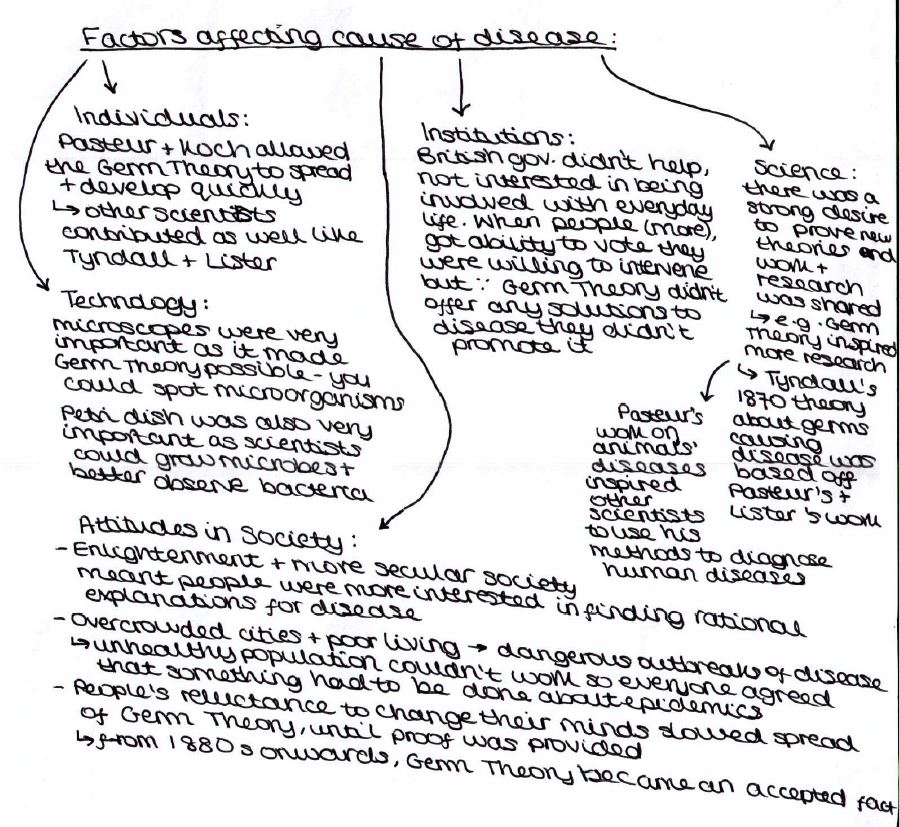 Factors affecting cause of disease:
Individuals:
Pasteur + Koch allowed
the Germ Theory to spread
+ develop quickly
↳ other scientists
contributed as well like
Tyndall + Lister
Technology:
microscopes were very
important as it made
Germ Theory possible - you
could spot microorganisms
Petri dish was also very
important as scientists
could grow microbes +
better observe bacteria
Institutions:
British gov. didn't help,
not interested in being
involved with everyday
life. When people (more),
got ability to vote they
were willing to intervene
but ∵ Germ Theory didn't
offer any solutions to
disease they didn't
promote it
Science:
there was a
strong desire
to prove new
theories and
work +
research
was shared
↳ e.g. Germ
Theory inspired
more research
↳ Tyndall's
1870 theory
about germs
causing
disease was
based off
Pasteur's +
Lister's work
Pasteur's
work on
animals'
diseases
inspired
other
scientists
to use his
methods to diagnose
human diseases
Attitudes in Society:
- Enlightenment + more secular society
meant people were more interested in finding rational
explanations for disease
- Overcrowded cities + poor living → dangerous outbreaks of disease
↳ unhealthy population couldn't work so everyone agreed
that something had to be done about epidemics
- People's reluctance to change their minds slowed spread
of Germ Theory, until proof was provided
↳ from 1880s onwards, Germ Theory became an accepted fact